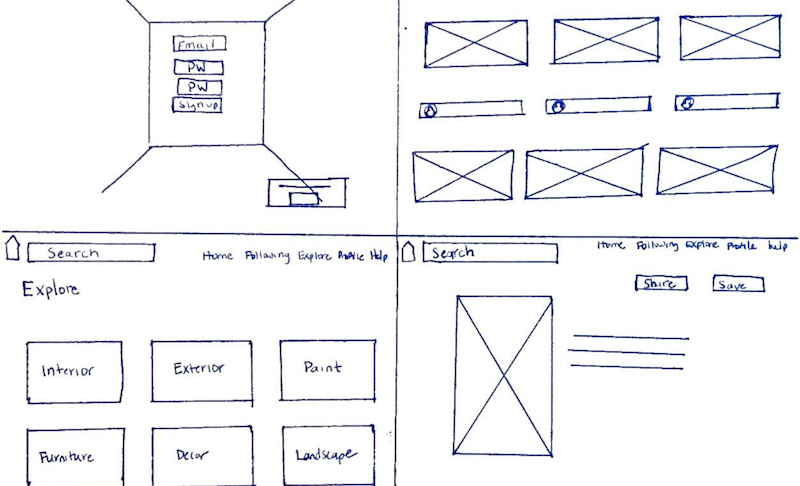 Email
PW
PW
Signup
Search
Home Following Explore Profile Help
Explore
Interior
Exterior
Paint
Furniture
Decor
Landscape
Search
Home Following Explore Profile help
Share
Save